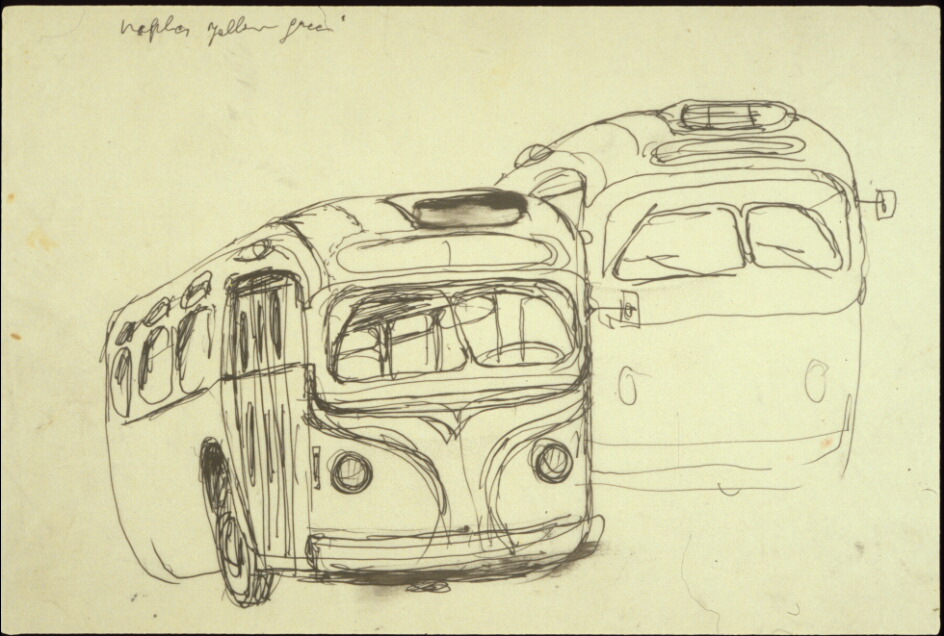 naples yellow green